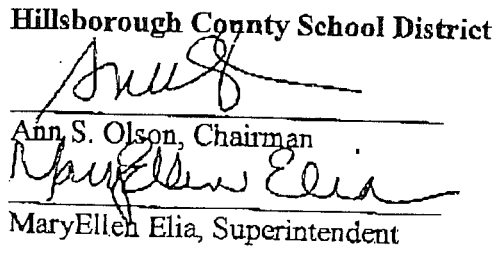 Hillsborough County School District
Ann S. Olson, Chairman
MaryEllen Elia
MaryEllen Elia, Superintendent